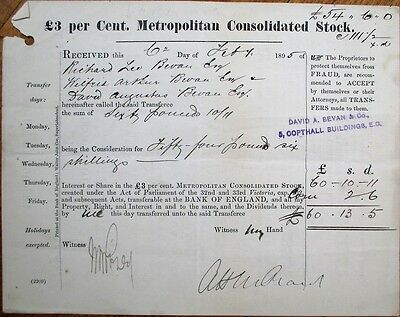 £54 " 6 " 0
£3 per Cent. Metropolitan Consolidated Stock.
x.d
RECEIVED this 6th Day of Feby 1895 of
Richard Lee Bevan Esq
Wilfred Arthur Bevan Esq &
David Augustus Bevan Esq
hereinafter called the said Transferee
the sum of Sixty pounds 10/11
being the Consideration for Fifty-four pounds six
shillings
Interest or Share in the £3 per cent. METROPOLITAN CONSOLIDATED STOCK,
created under the Act of Parliament of the 32nd and 33rd Victoria, cap.
and subsequent Acts, transferable at the BANK OF ENGLAND, and all
Property, Right, and Interest in and to the same, and the Dividends thereon
by me this day transferred unto the said Transferee
Witness my Hand
Witness
Transfer
days:
Monday,
Tuesday,
Wednesday,
Thursday,
Friday.
Holidays
excepted.
(2209)
The Proprietors to
protect themselves from
FRAUD, are recom-
mended to ACCEPT
by themselves or their
Attorneys, all TRANS-
FERS made to them.
DAVID A. BEVAN & Co.,
5, COPTHALL BUILDINGS, E.C.
£ s. d.
60 - 10 - 11
2 . 6
£ 60 . 13 . 5